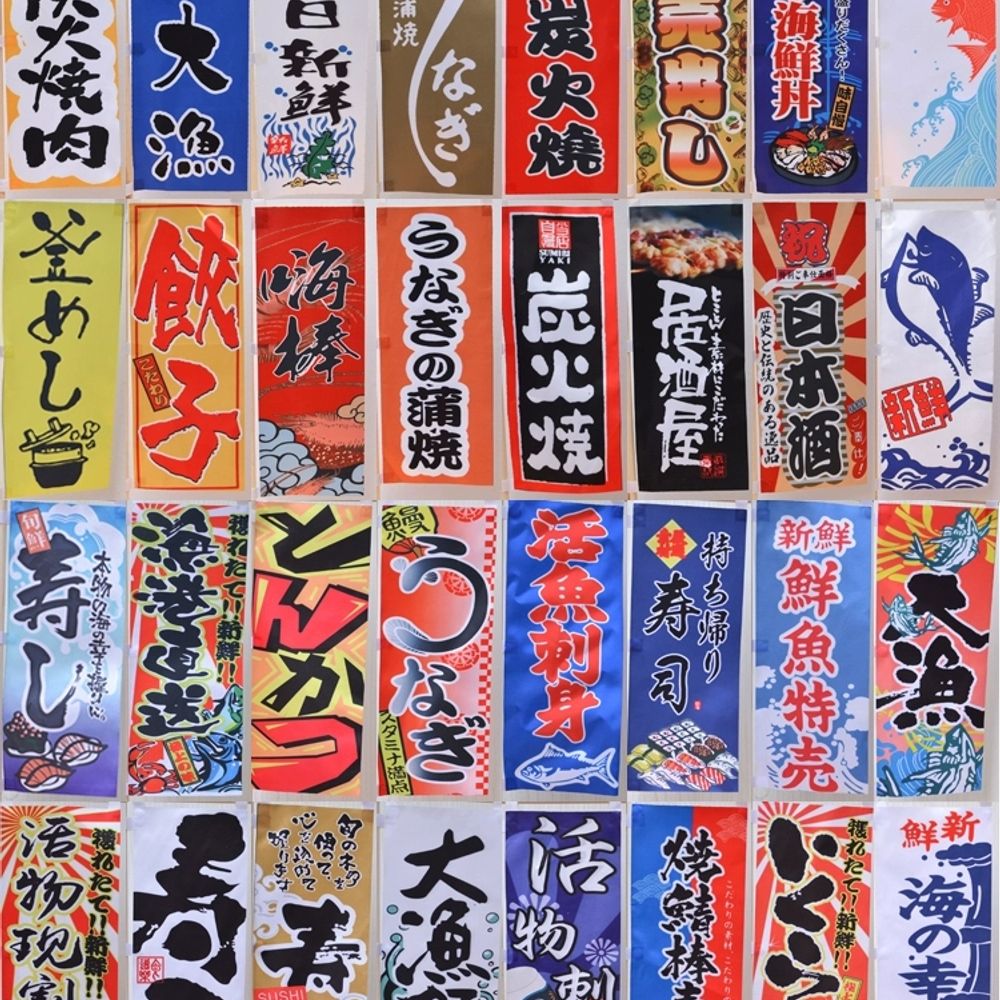 炭火焼肉
大漁
日新鮮
蒲焼
うなぎ
炭火燒
売出し
盛りだくさん!
海鮮丼
味自慢
釜めし
餃子
こだわり
嗨棒
うなぎの蒲焼
当店自慢
SUMIBI
YAKI
炭火焼
居酒屋
とことん素材にこだわった
祝
特別ご奉仕品
日本酒
歴史と伝統のある逸品
ご奉仕!
新鮮
旬鮮
寿し
本物の海の幸を捧ぐ。
獲れたて!!新鮮!!
漁港直送
とんかつ
鰻
うなぎ
スタミナ満点
活魚刺身
持ち帰り
寿司
新鮮
鮮魚特売
大漁
獲れたて!!新鮮!!
活物現割
寿司
旬のネタを
使って、
心を込めて
握ります
寿
SUSHI
大漁
活物刺
焼鯖棒寿
こだわりの素材、こだわりの
獲れたて!!新鮮!!
いくら
新鮮
海の幸